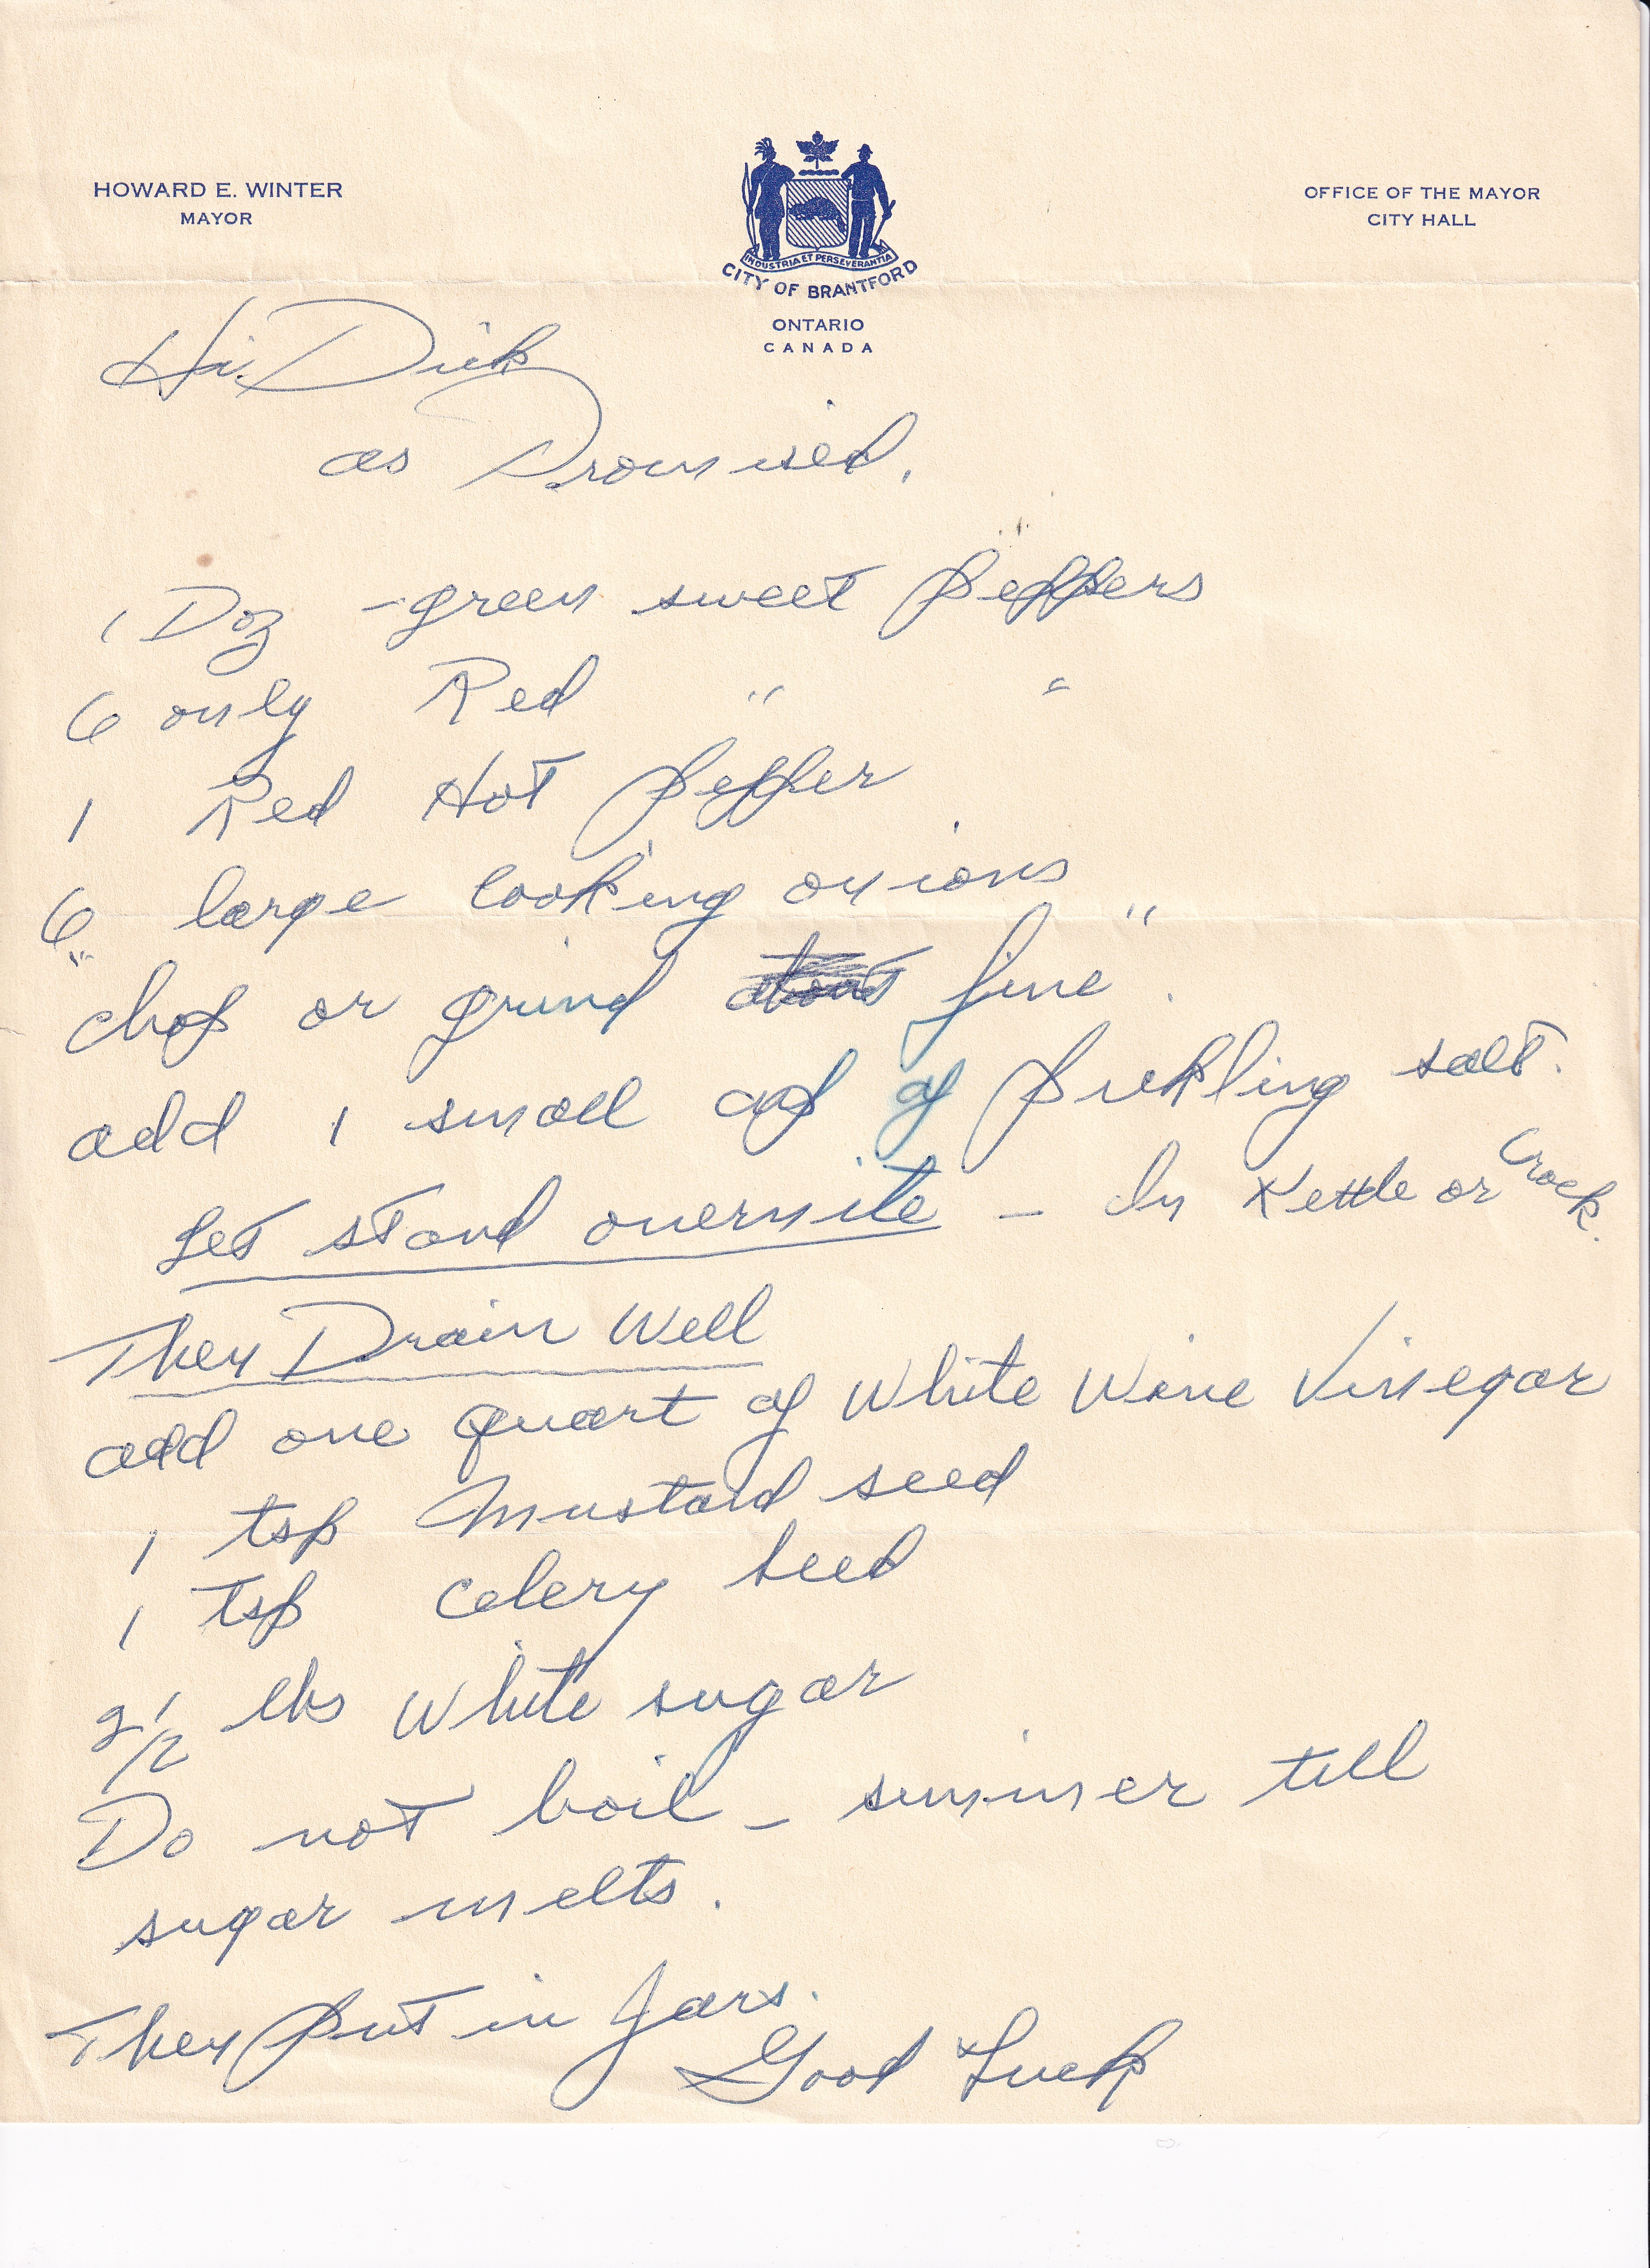 HOWARD E. WINTER
MAYOR
INDUSTRIA ET PERSEVERANTIA
CITY OF BRANTFORD
ONTARIO
CANADA
OFFICE OF THE MAYOR
CITY HALL
Hi. Dick
as Promised.
1 Doz - green sweet peppers
6 only Red " "
1 Red Hot pepper
6 large cooking onions
"chop or grind fine".
add 1 small cup of pickling salt.
Let stand overnite - In Kettle or Crock.
Then Drain Well
add one quart of White Wine Vinegar
1 tsp Mustard seed
1 tsp celery seed
2 1/2 lbs White sugar
Do not boil - simmer till
sugar melts.
Then put in Jars.
Good Luck